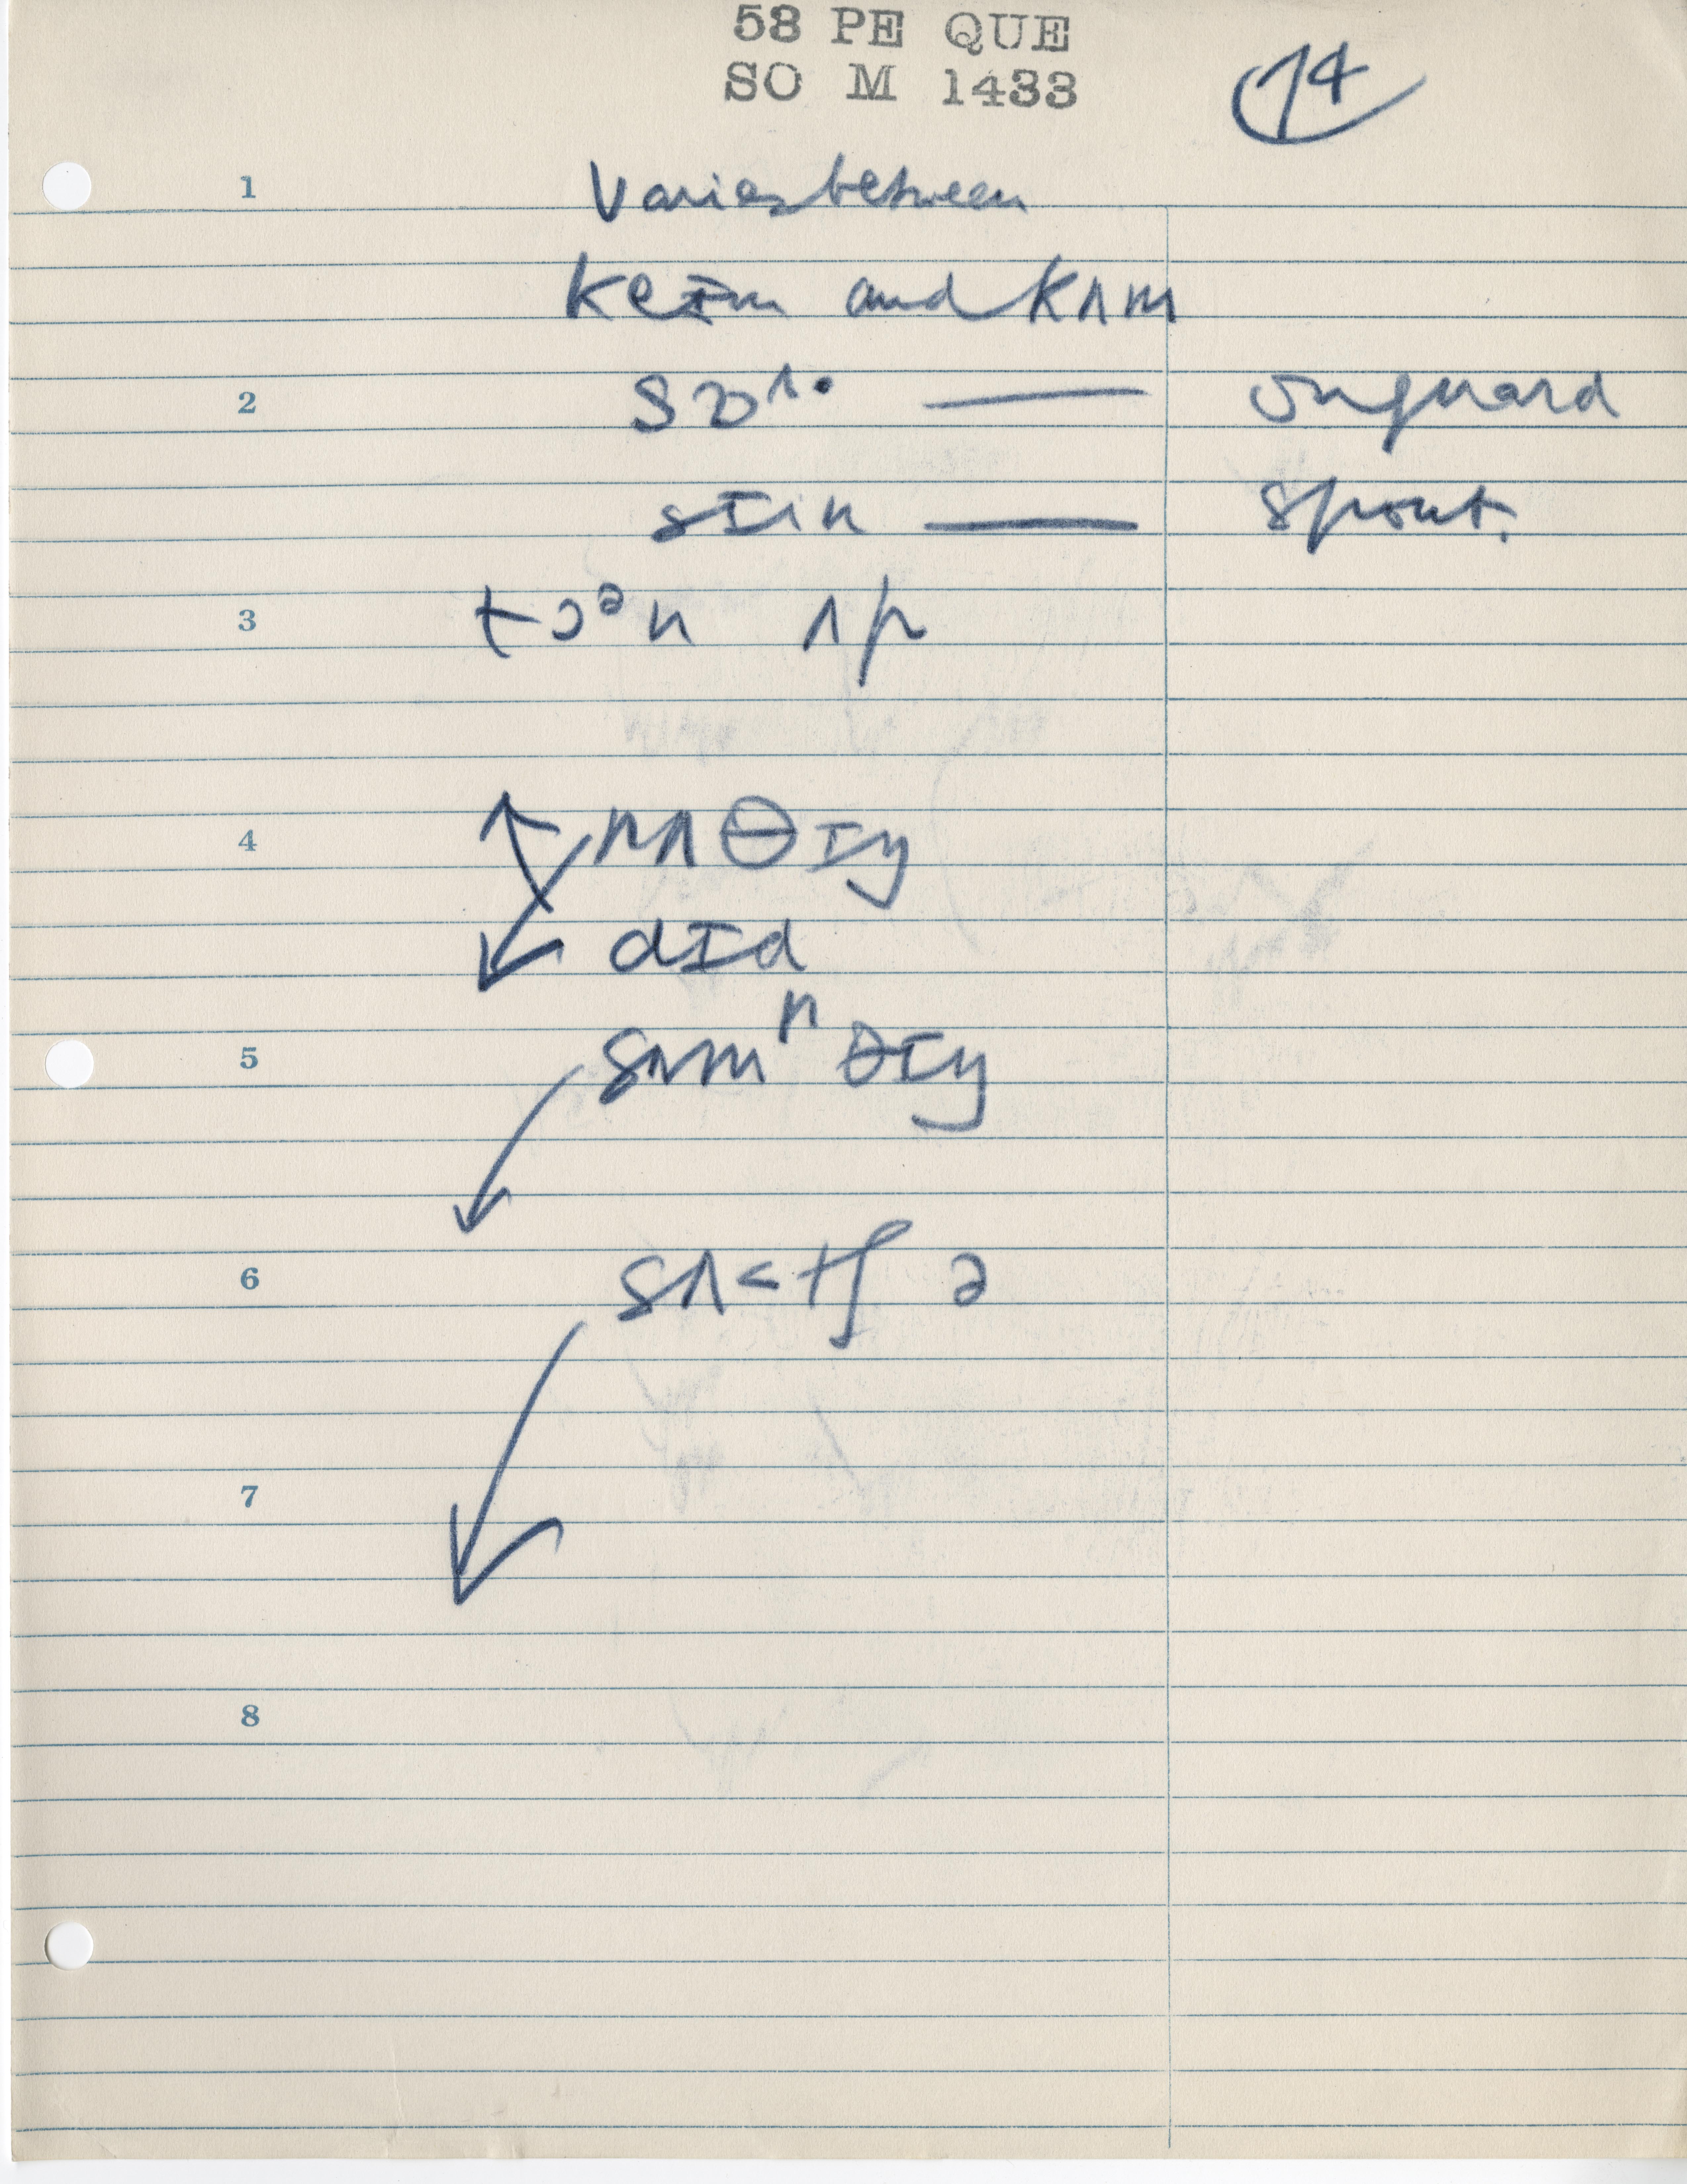 58 PE QUE
SO M 1433
14
1 Varies between
keɪm and kʌm
2 — on guard
stɪɪn — spout.
3 tɔᵊn ʌp
4 nʌθɪŋ
dɪd
5 sʌmⁿθɪŋ
6 sʌ<tʃ ə
7
8